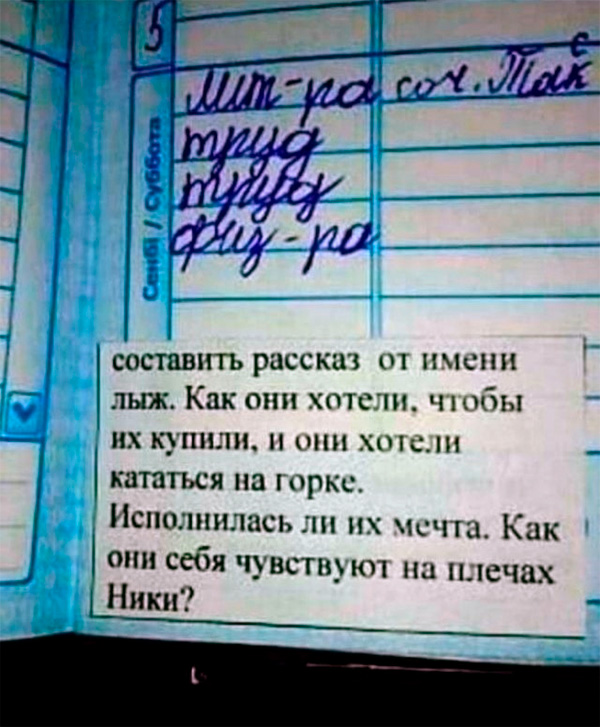 5
Сенбі / Суббота
Лит-ра соч.
труд
труд
физ-ра
составить рассказ от имени
лыж. Как они хотели, чтобы
их купили, и они хотели
кататься на горке.
Исполнилась ли их мечта. Как
они себя чувствуют на плечах
Ники?